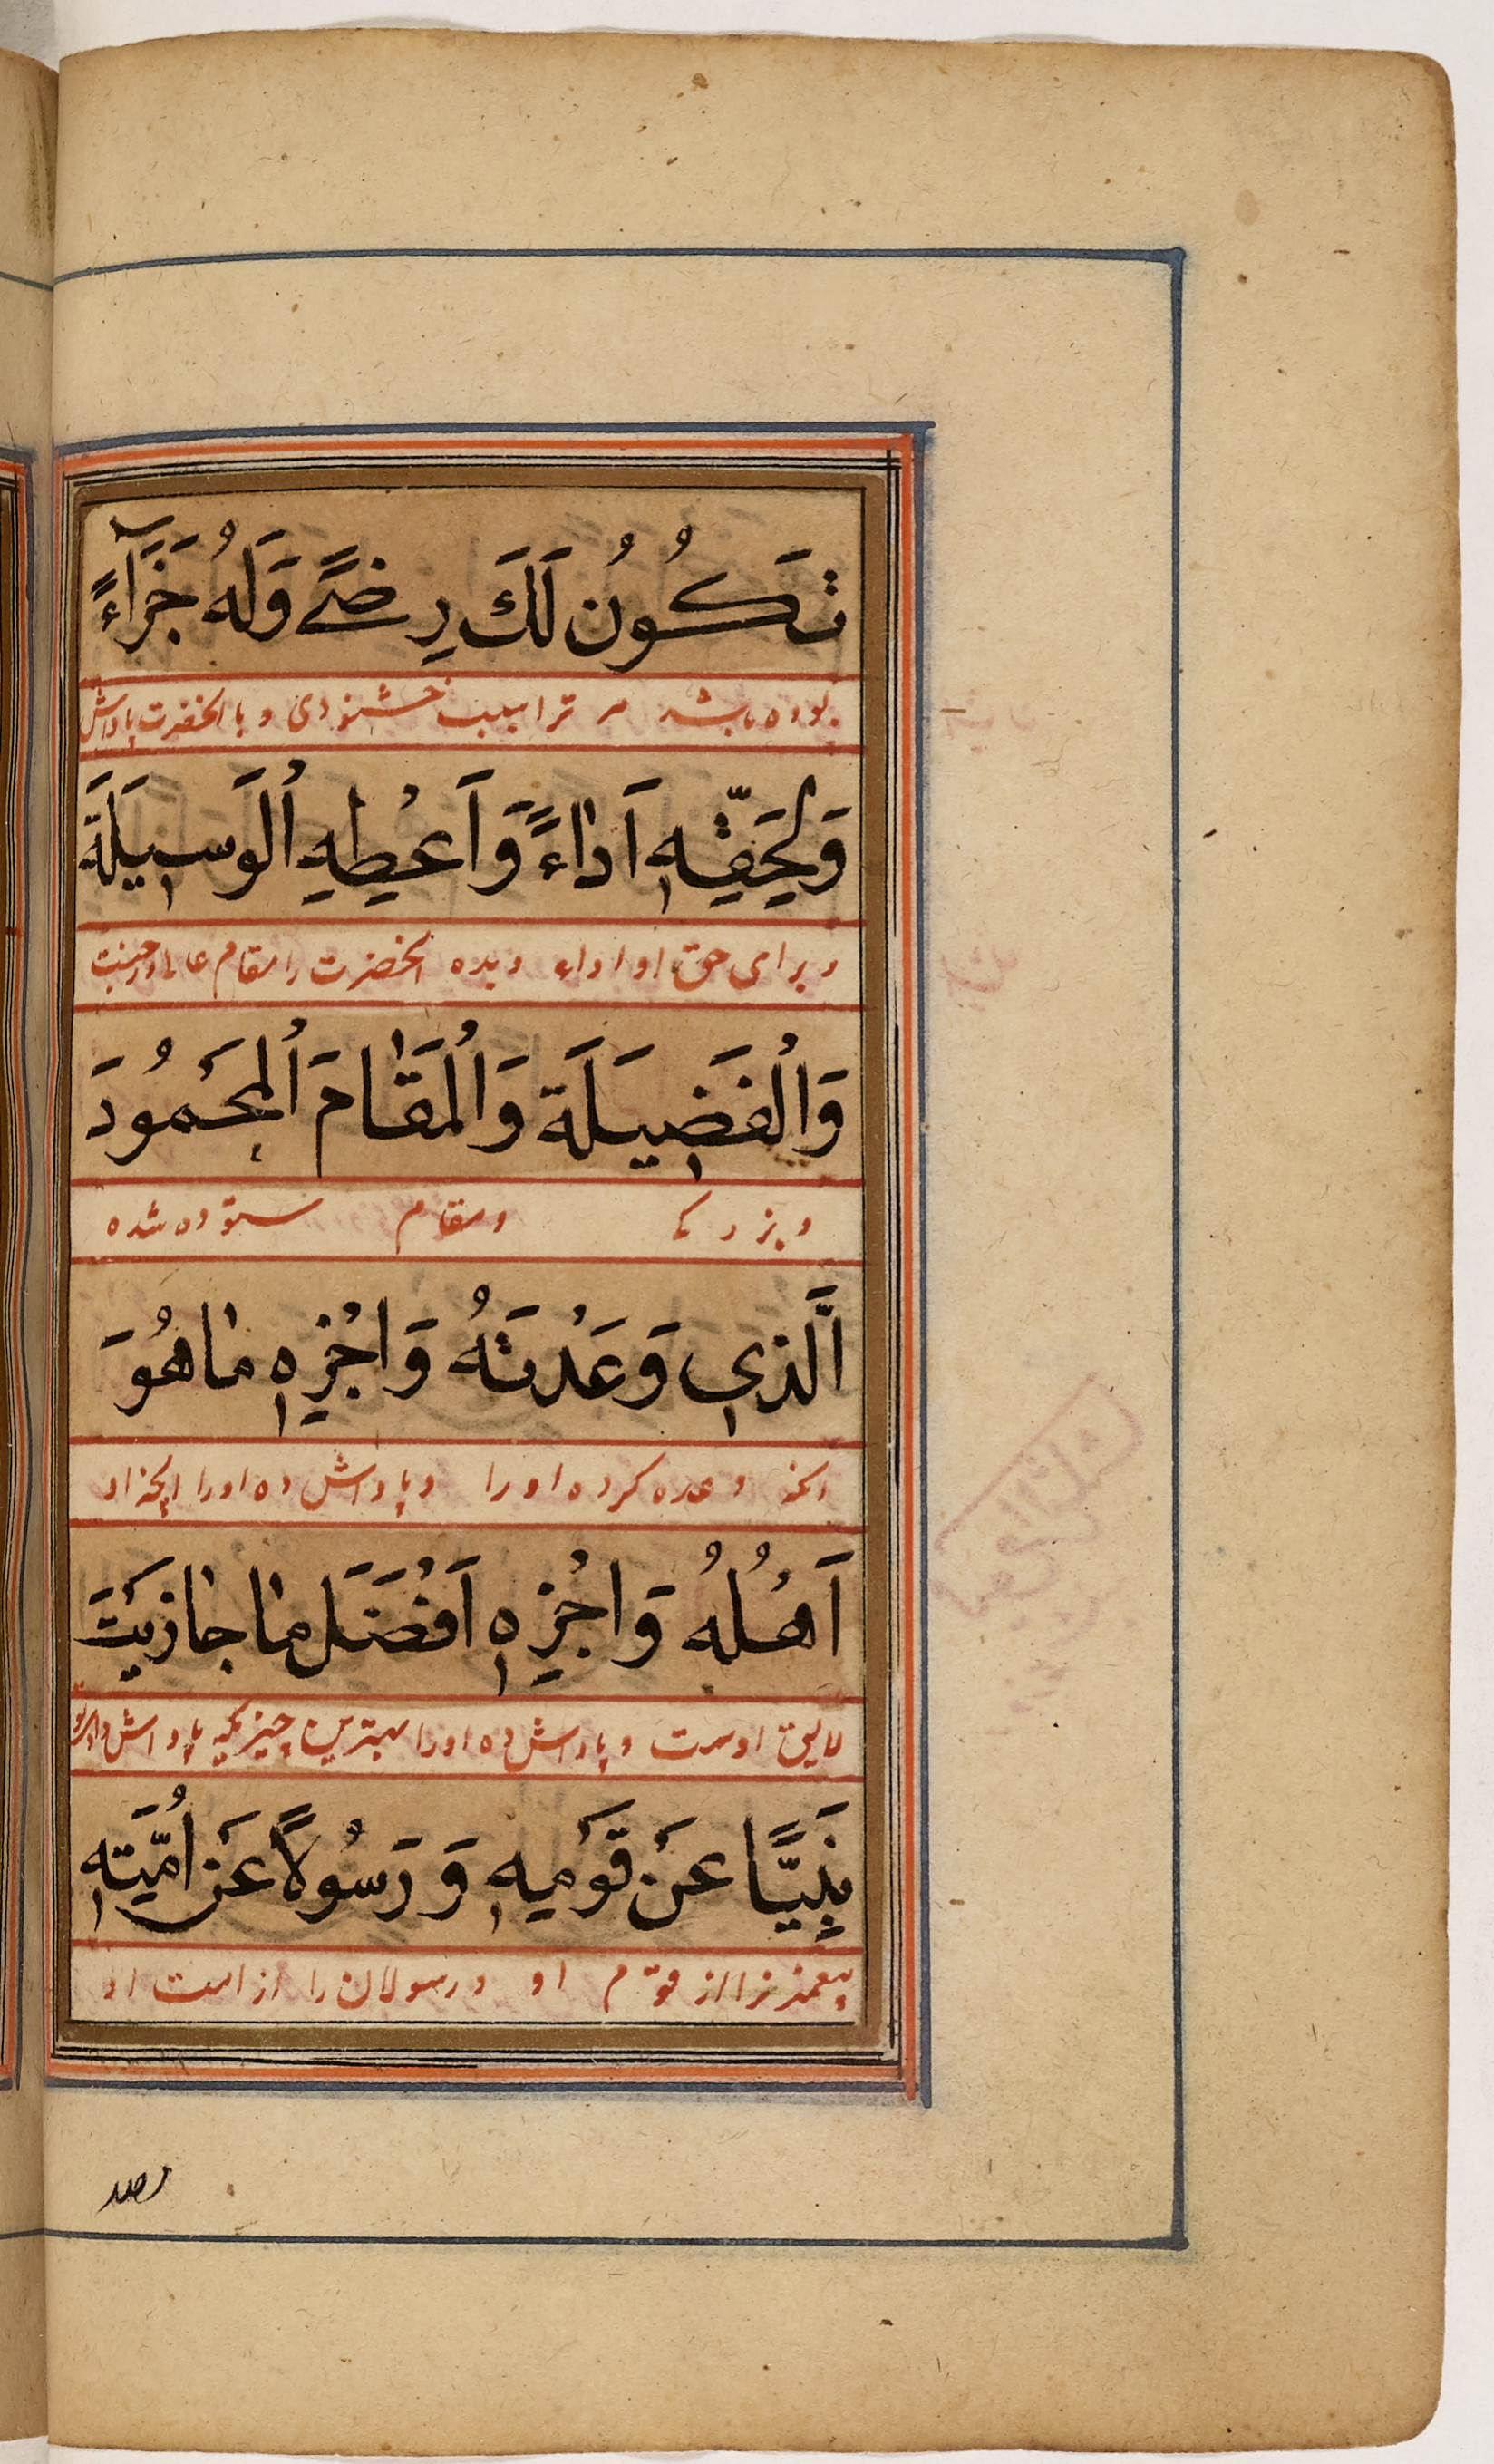 تَكُونُ لَكَ رِضًى وَلَهُ جَزَآءً
بوده باشد مر ترا سبب خشنودی و با الحضرت پاداش
وَلِحَقِّهِ اَدَاءً وَاَعْطِهِ اُلْوَسِيلَةَ
و برای حق او اداء و بده الحضرت را مقام عالی در جنت
وَاُلْفَضِيلَةَ وَاُلْمَقَامَ اُلْمَحْمُودَ
و بزرگی و مقام ستوده شده
اَلَّذِي وَعَدْتَهُ وَاجْزِهِ مَا هُوَ
وعده کرده او را و پاداش ده او را انچه او
اَهْلُهُ وَاجْزِهِ اَفْضَلَ مَا جَازَيْتَ
لایق اوست و پاداش ده او را بهترین چیزیکه پاداش
نَبِيًّا عَنْ قَوْمِهِ وَرَسُولًا عَنْ اُمَّتِهِ
پیغمبر را از قوم او و رسولان را از امت او